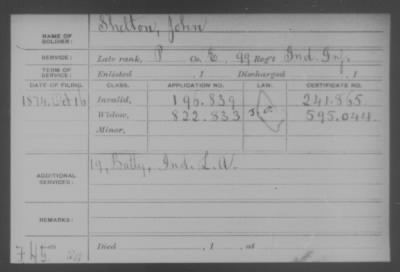 NAME OF SOLDIER: Shelton, John
SERVICE: Late rank, P Co. E, 99 Reg't Ind. Inf.
TERM OF SERVICE: Enlisted , 1 Discharged , 1
DATE OF FILING. CLASS. APPLICATION NO. LAW. CERTIFICATE NO.
1874, Oct 16 Invalid, 195.839 241.865
Widow, 822.833 595.044
Minor,
ADDITIONAL SERVICES: 19, Batty, Ind. L. A.
REMARKS:
Died , 1 , at